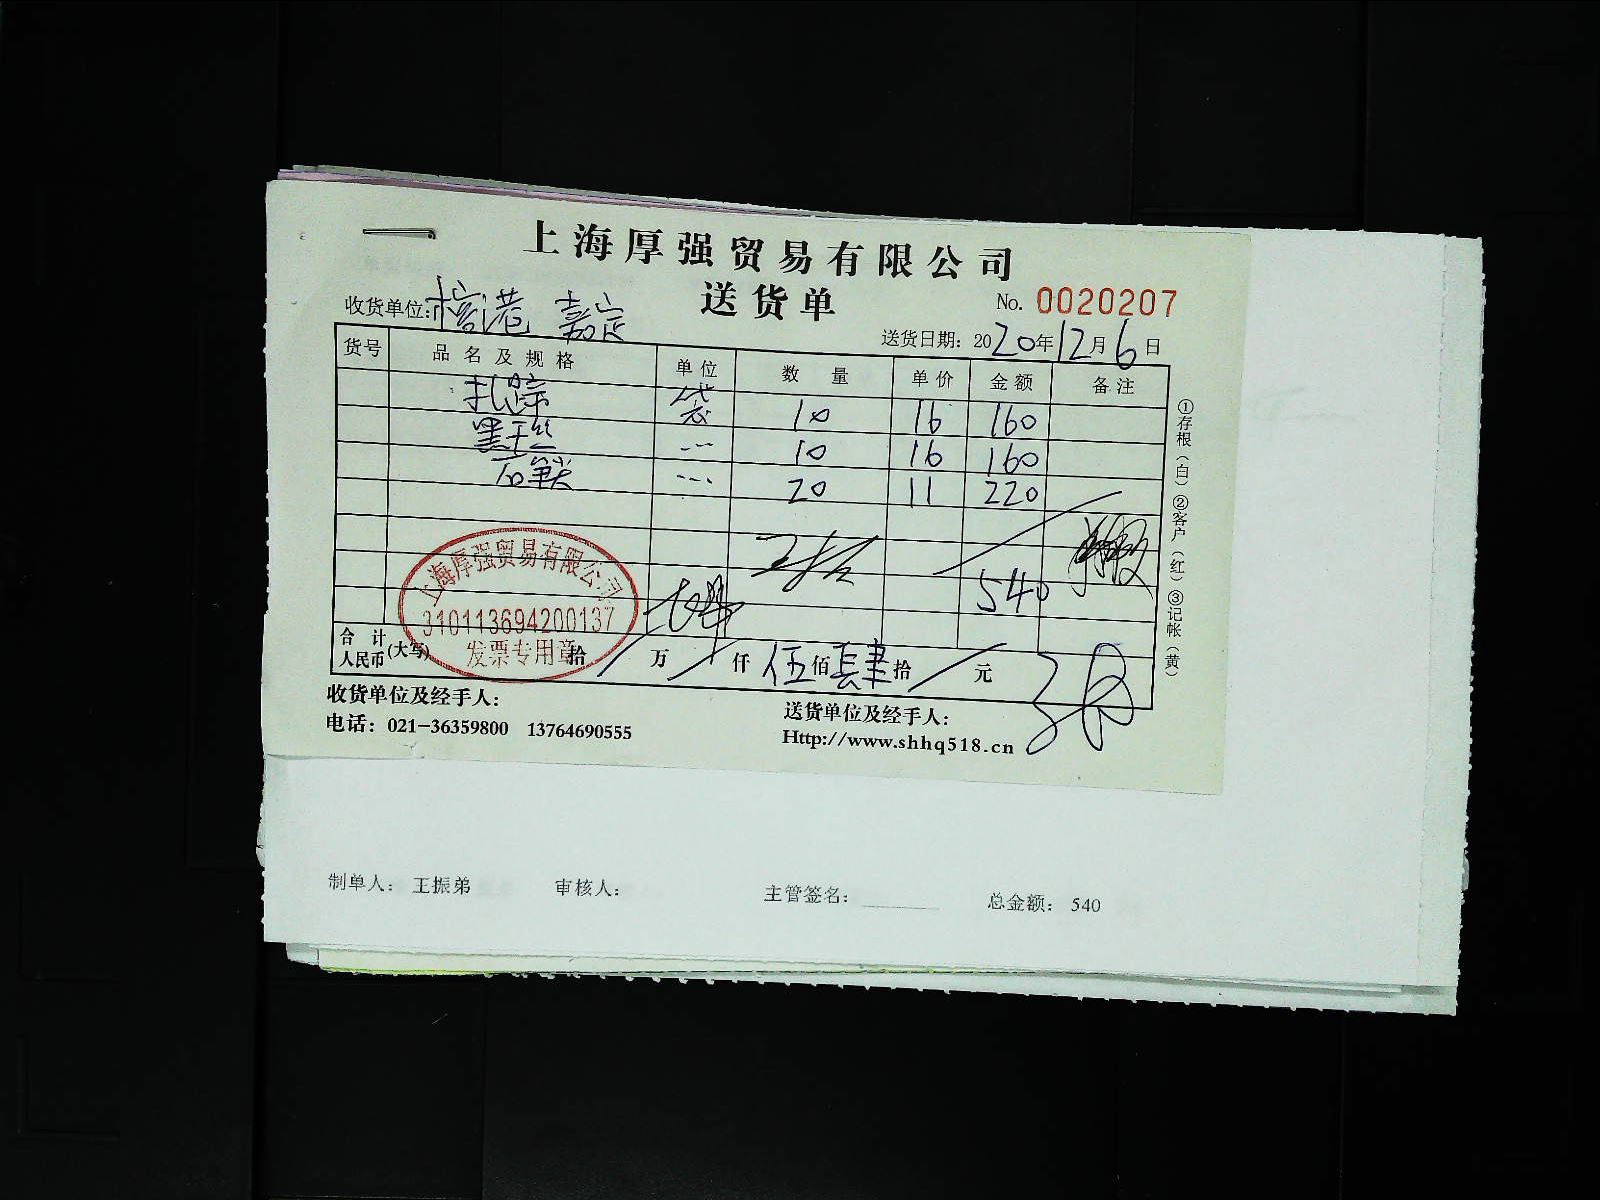 上海厚强贸易有限公司
送货单
No. 0020207
收货单位: 港 嘉定
送货日期: 2020年12月6日
货号 品名及规格 单位 数量 单价 金额 备注
扎蹄 袋 10 16 160
10 16 160
20 11 220
540
上海厚强贸易有限公司
310113694200137
发票专用章
合计人民币(大写) 拾 / 万 / 仟 伍 佰 肆 拾 / 元
收货单位及经手人:
送货单位及经手人:
电话: 021-36359800 13764690555
Http://www.shhq518.cn
①存根(白)②客户(红)③记帐(黄)
制单人: 王振弟 审核人: 主管签名: ______ 总金额: 540